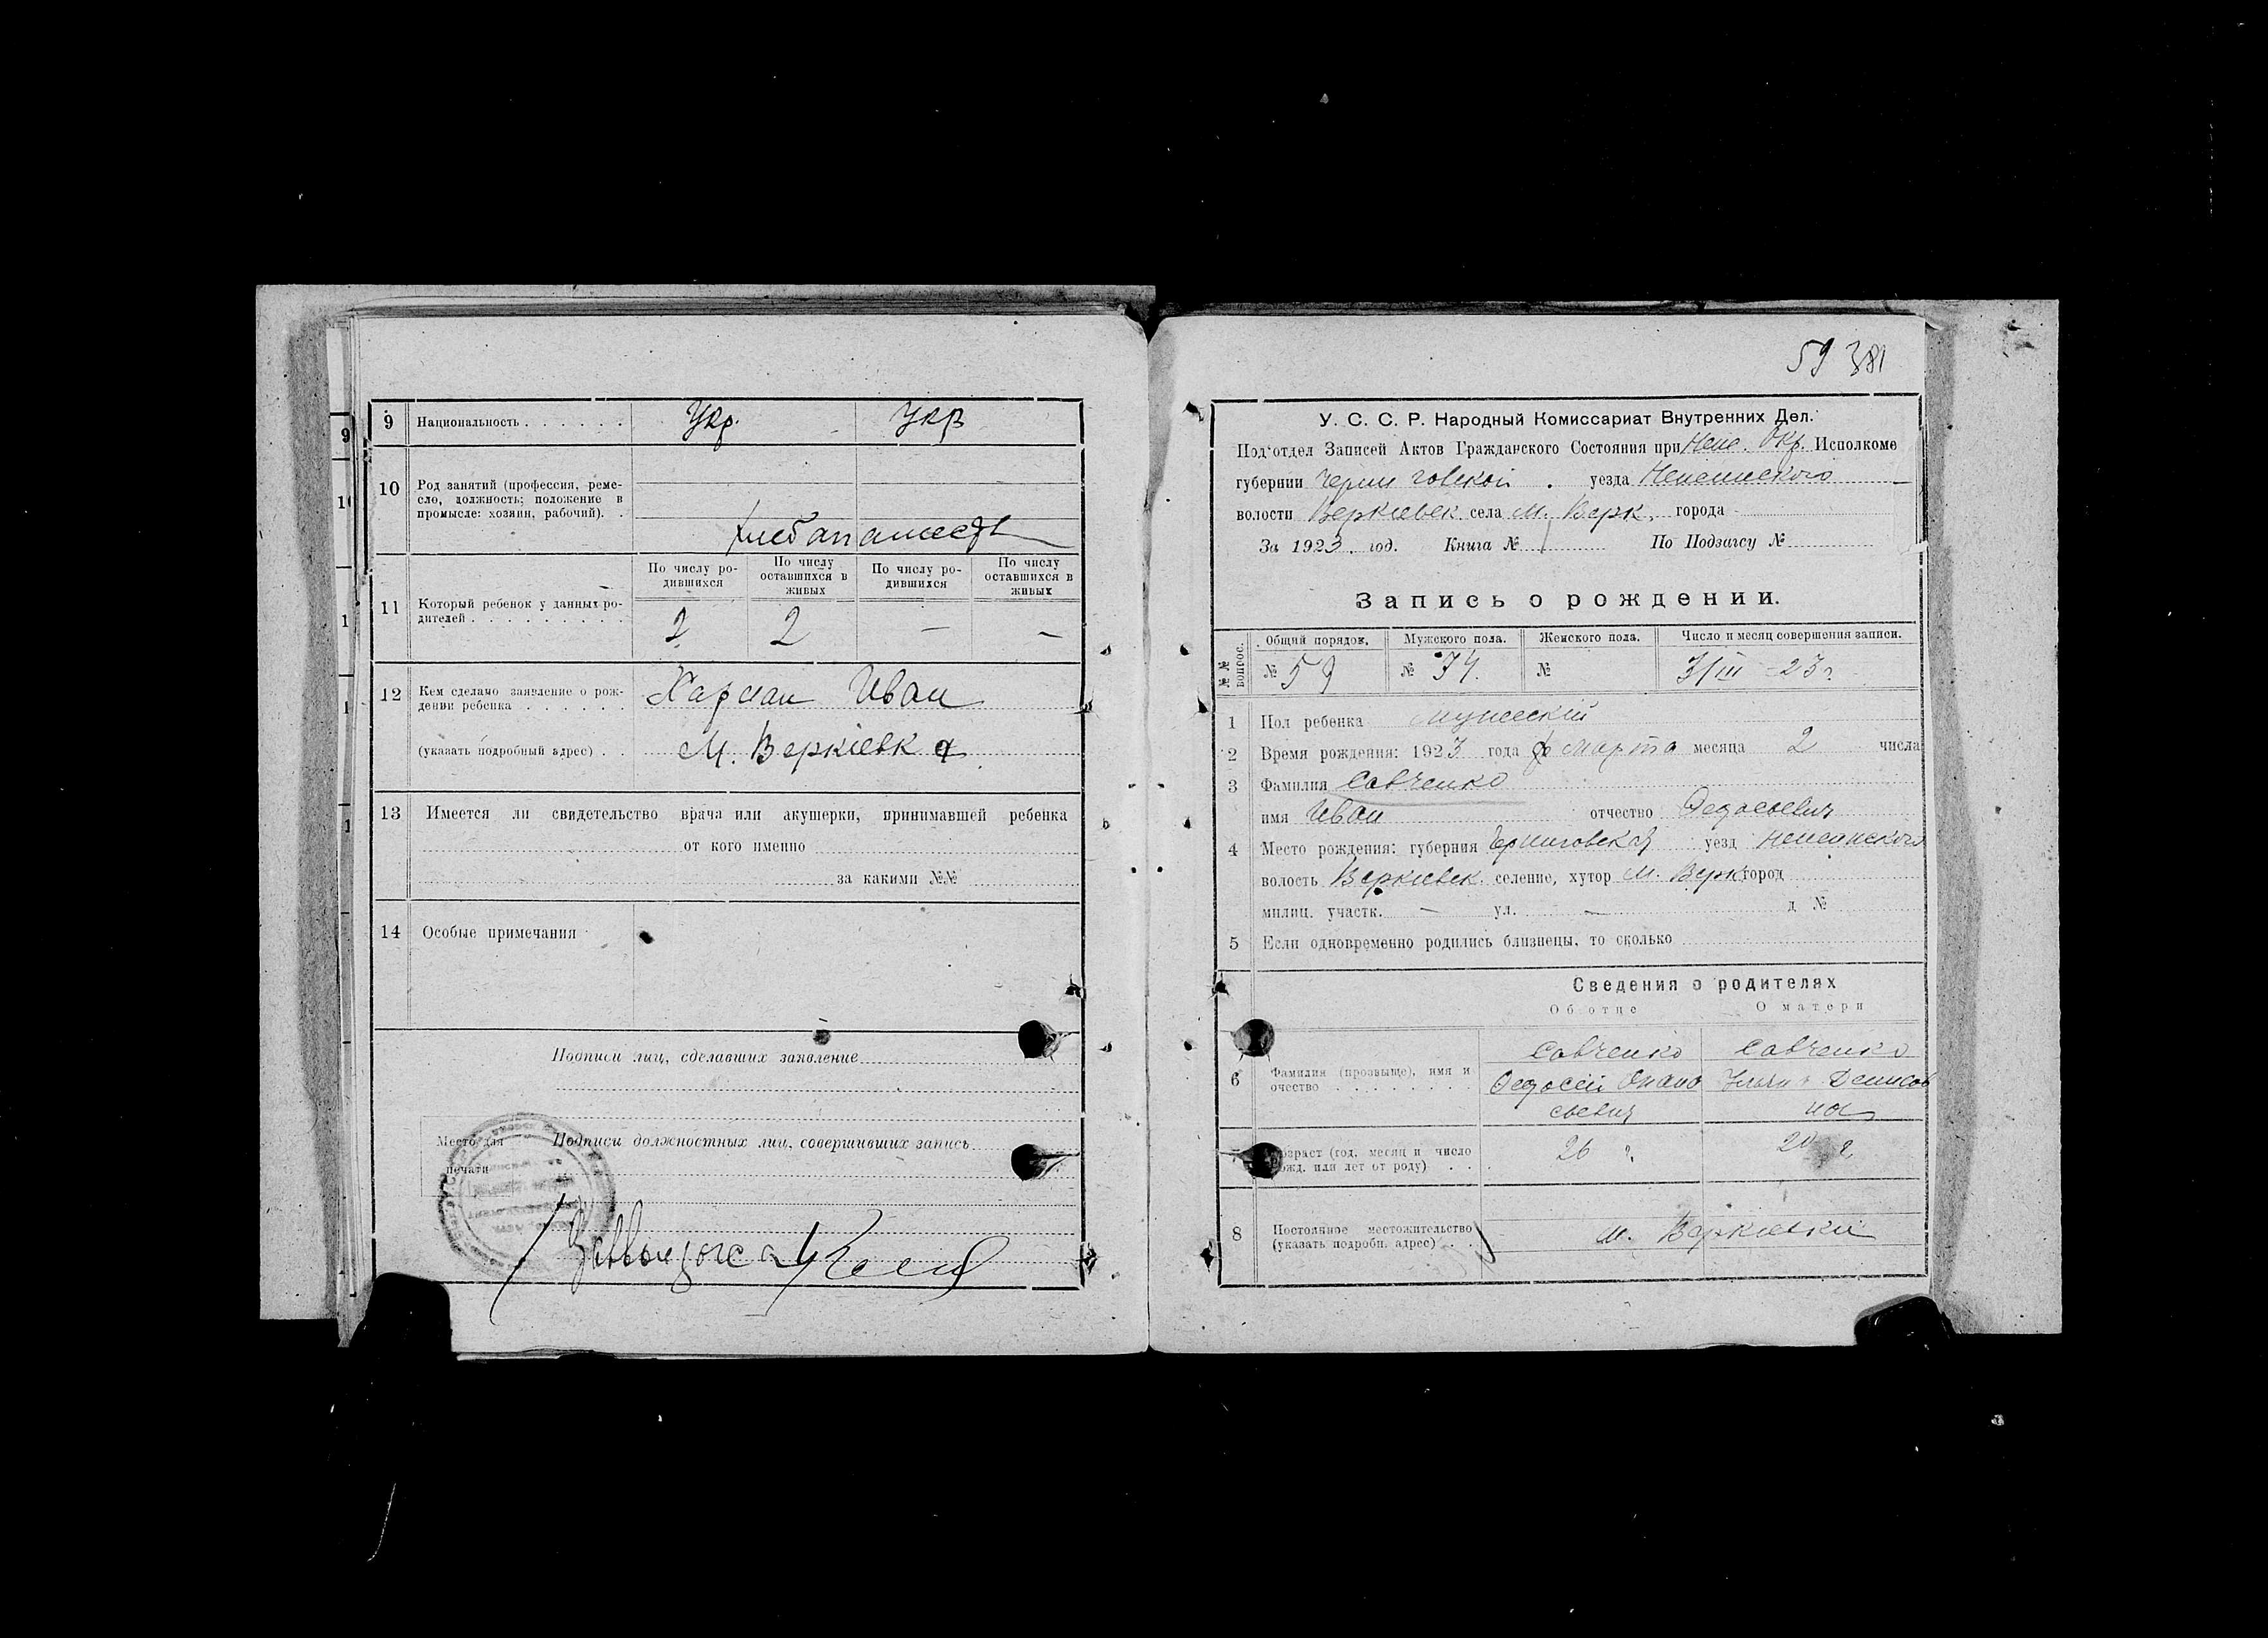 9 Национальность . . . . . . Укр. Укр
10 Род занятий (профессия, реме-
сло, должность; положение в
промысле: хозяин, рабочий). .
хлебопашест
По числу ро-
дившихся
По числу
оставшихся в
живых
По числу ро-
дившихся
По числу
оставшихся в
живых
11 Который ребенок у данных ро-
дителей . . . . . . . . .
2 2 — —
12 Кем сделано заявление о рож-
дении ребенка . . . . . .
Харман Иван
(указать подробный адрес) . . М. Веркіевка
13 Имеется ли свидетельство врача или акушерки, принимавшей ребенка
от кого именно
за какими №№
14 Особые примечания
Подписи лиц, сделавших заявление
Место для
печати
Подписи должностных лиц, совершивших запись
59 381
У. С. С. Р. Народный Комиссариат Внутренних Дел.
Под'отдел Записей Актов Гражданского Состояния при Неж. Окр. Исполкоме
губернии Черниговской . уезда Неженского
волости Веркіевск. села М. Верк. города
За 1923 . год. Книга № По Подзагсу №
Запись о рождении.
№№ вопрос.
Общий порядок. Мужского пола. Женского пола. Число и месяц совершения записи.
№ 59 № 34. № 3/III -23 г.
1 Пол ребенка мужеский
2 Время рождения: 1923 года марта месяца 2 числа
3 Фамилия Савченко
имя Иван отчество Федосеевич
4 Место рождения: губерния Черниговская уезд Неженского
волость Веркиевск. селение, хутор М. Верк город
милиц. участк. — ул. — д №
5 Если одновременно родились близнецы, то сколько
Сведения о родителях
Об отце О матери
6 Фамилия (прозвыще), имя и
очество . . . . . . . . .
Савченко Савченко
Федосей Опана Ульяна Денисов
сьевич на
Возраст (год, месяц и число
рожд. или лет от роду) . . .
26 г. 20 г.
8 Постоянное местожительство
(указать подробн. адрес) . .
м. Веркиевки